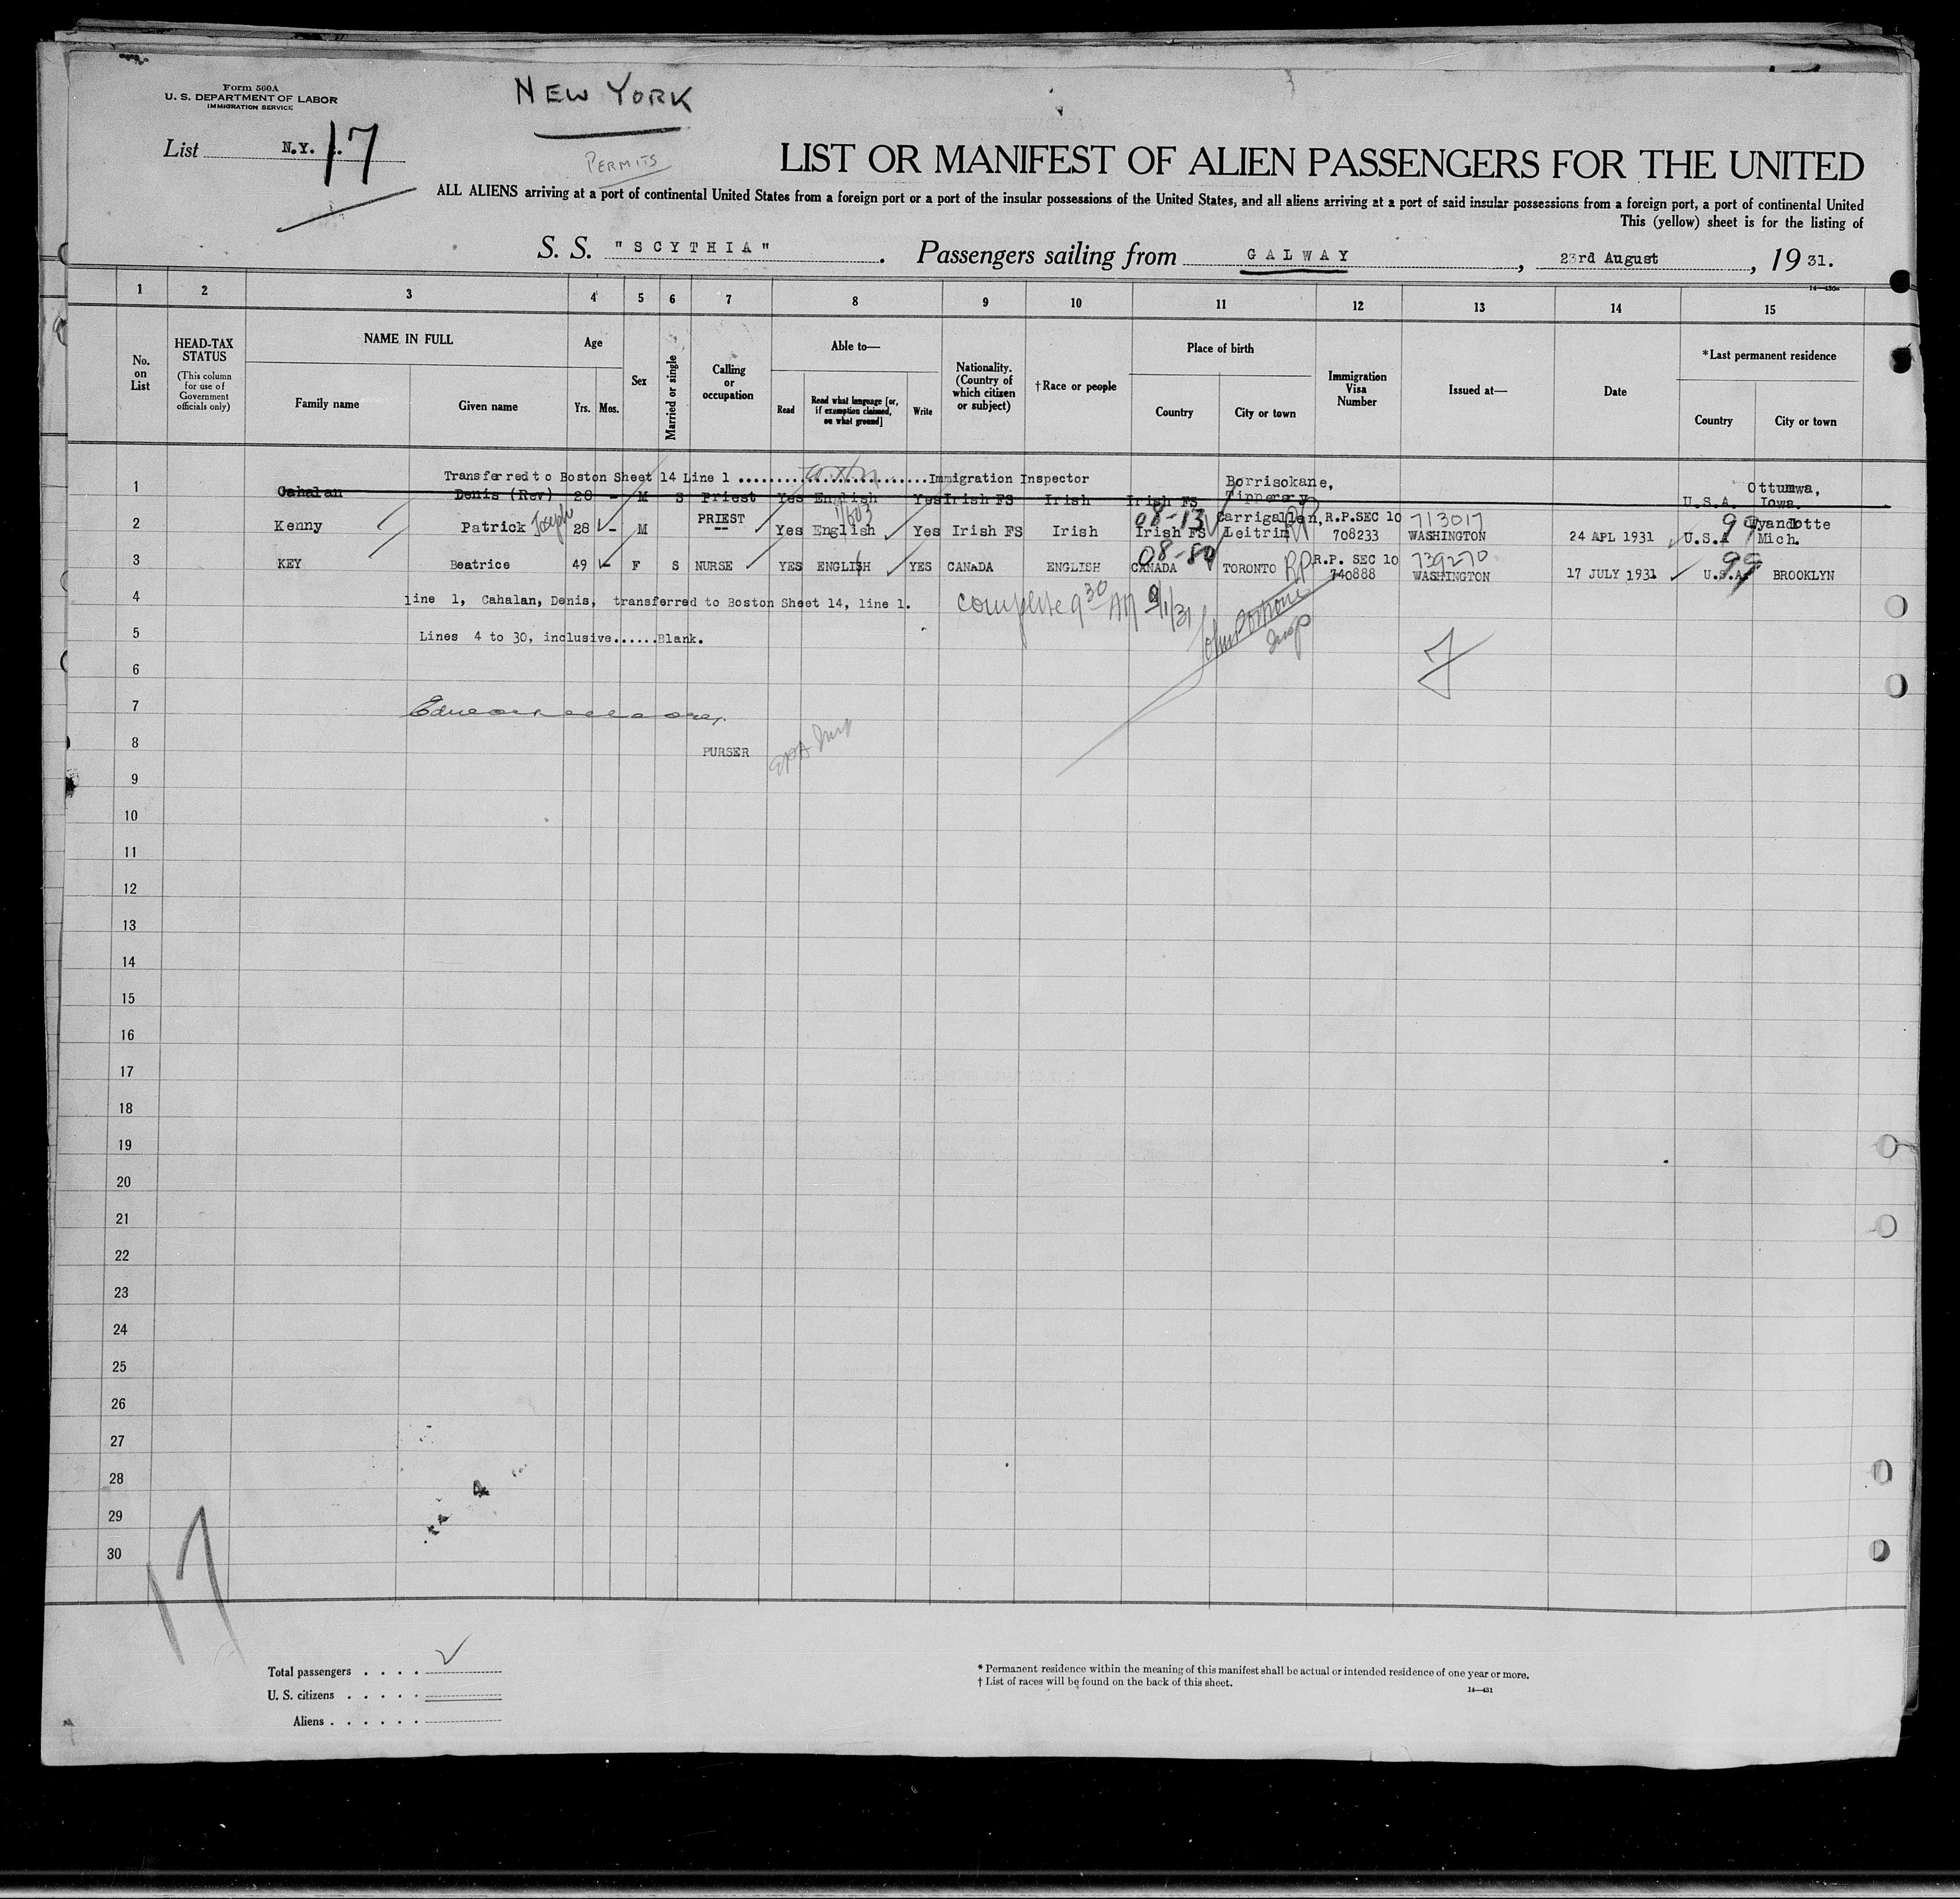 Form 500A
U. S. DEPARTMENT OF LABOR
IMMIGRATION SERVICE
NEW YORK
PERMITS
List N.Y. 17
LIST OR MANIFEST OF ALIEN PASSENGERS FOR THE UNITED
ALL ALIENS arriving at a port of continental United States from a foreign port or a port of the insular possessions of the United States, and all aliens arriving at a port of said insular possessions from a foreign port, a port of continental United
This (yellow) sheet is for the listing of
S. S. "SCYTHIA". Passengers sailing from GALWAY, 23rd August, 1931.
1 2 3 4 5 6 7 8 9 10 11 12 13 14 15
No. on List
HEAD-TAX STATUS (This column for use of Government officials only)
NAME IN FULL Family name Given name
Age Yrs. Mos.
Sex
Married or single
Calling or occupation
Able to— Read Read what language [or, if exemption claimed, on what ground] Write
Nationality. (Country of which citizen or subject)
†Race or people
Place of birth Country City or town
Immigration Visa Number
Issued at—
Date
*Last permanent residence Country City or town
Transferred to Boston Sheet 14 Line 1 Immigration Inspector
1 Cahalan Denis (Rev) 28 - M S Priest Yes English Yes Irish FS Irish Irish FS Borrisokane, Tipperary U.S.A. Ottumwa, Iowa.
2 Kenny Patrick Joseph 28 - M PRIEST -- Yes English 11/603 Yes Irish FS Irish 08-13 Irish FS Carrigallen, Leitrim RP R.P.SEC 10 708233 713017 WASHINGTON 24 APL 1931 U.S.A 99 Wyandotte Mich.
3 KEY Beatrice 49 - F S NURSE YES ENGLISH YES CANADA ENGLISH 08-80 CANADA TORONTO RP R.P. SEC 10 740888 739270 WASHINGTON 17 JULY 1931 U.S.A. 99 BROOKLYN
4 line 1, Cahalan, Denis, transferred to Boston Sheet 14, line 1. complete 9 30 AM 9/1/31
5 Lines 4 to 30, inclusive......Blank. Insp
6
7
8 PURSER
9
10
11
12
13
14
15
16
17
18
19
20
21
22
23
24
25
26
27
28
29
30
17
Total passengers . . . .
U. S. citizens . . . . .
Aliens . . . . . .
* Permanent residence within the meaning of this manifest shall be actual or intended residence of one year or more.
† List of races will be found on the back of this sheet.
14—431